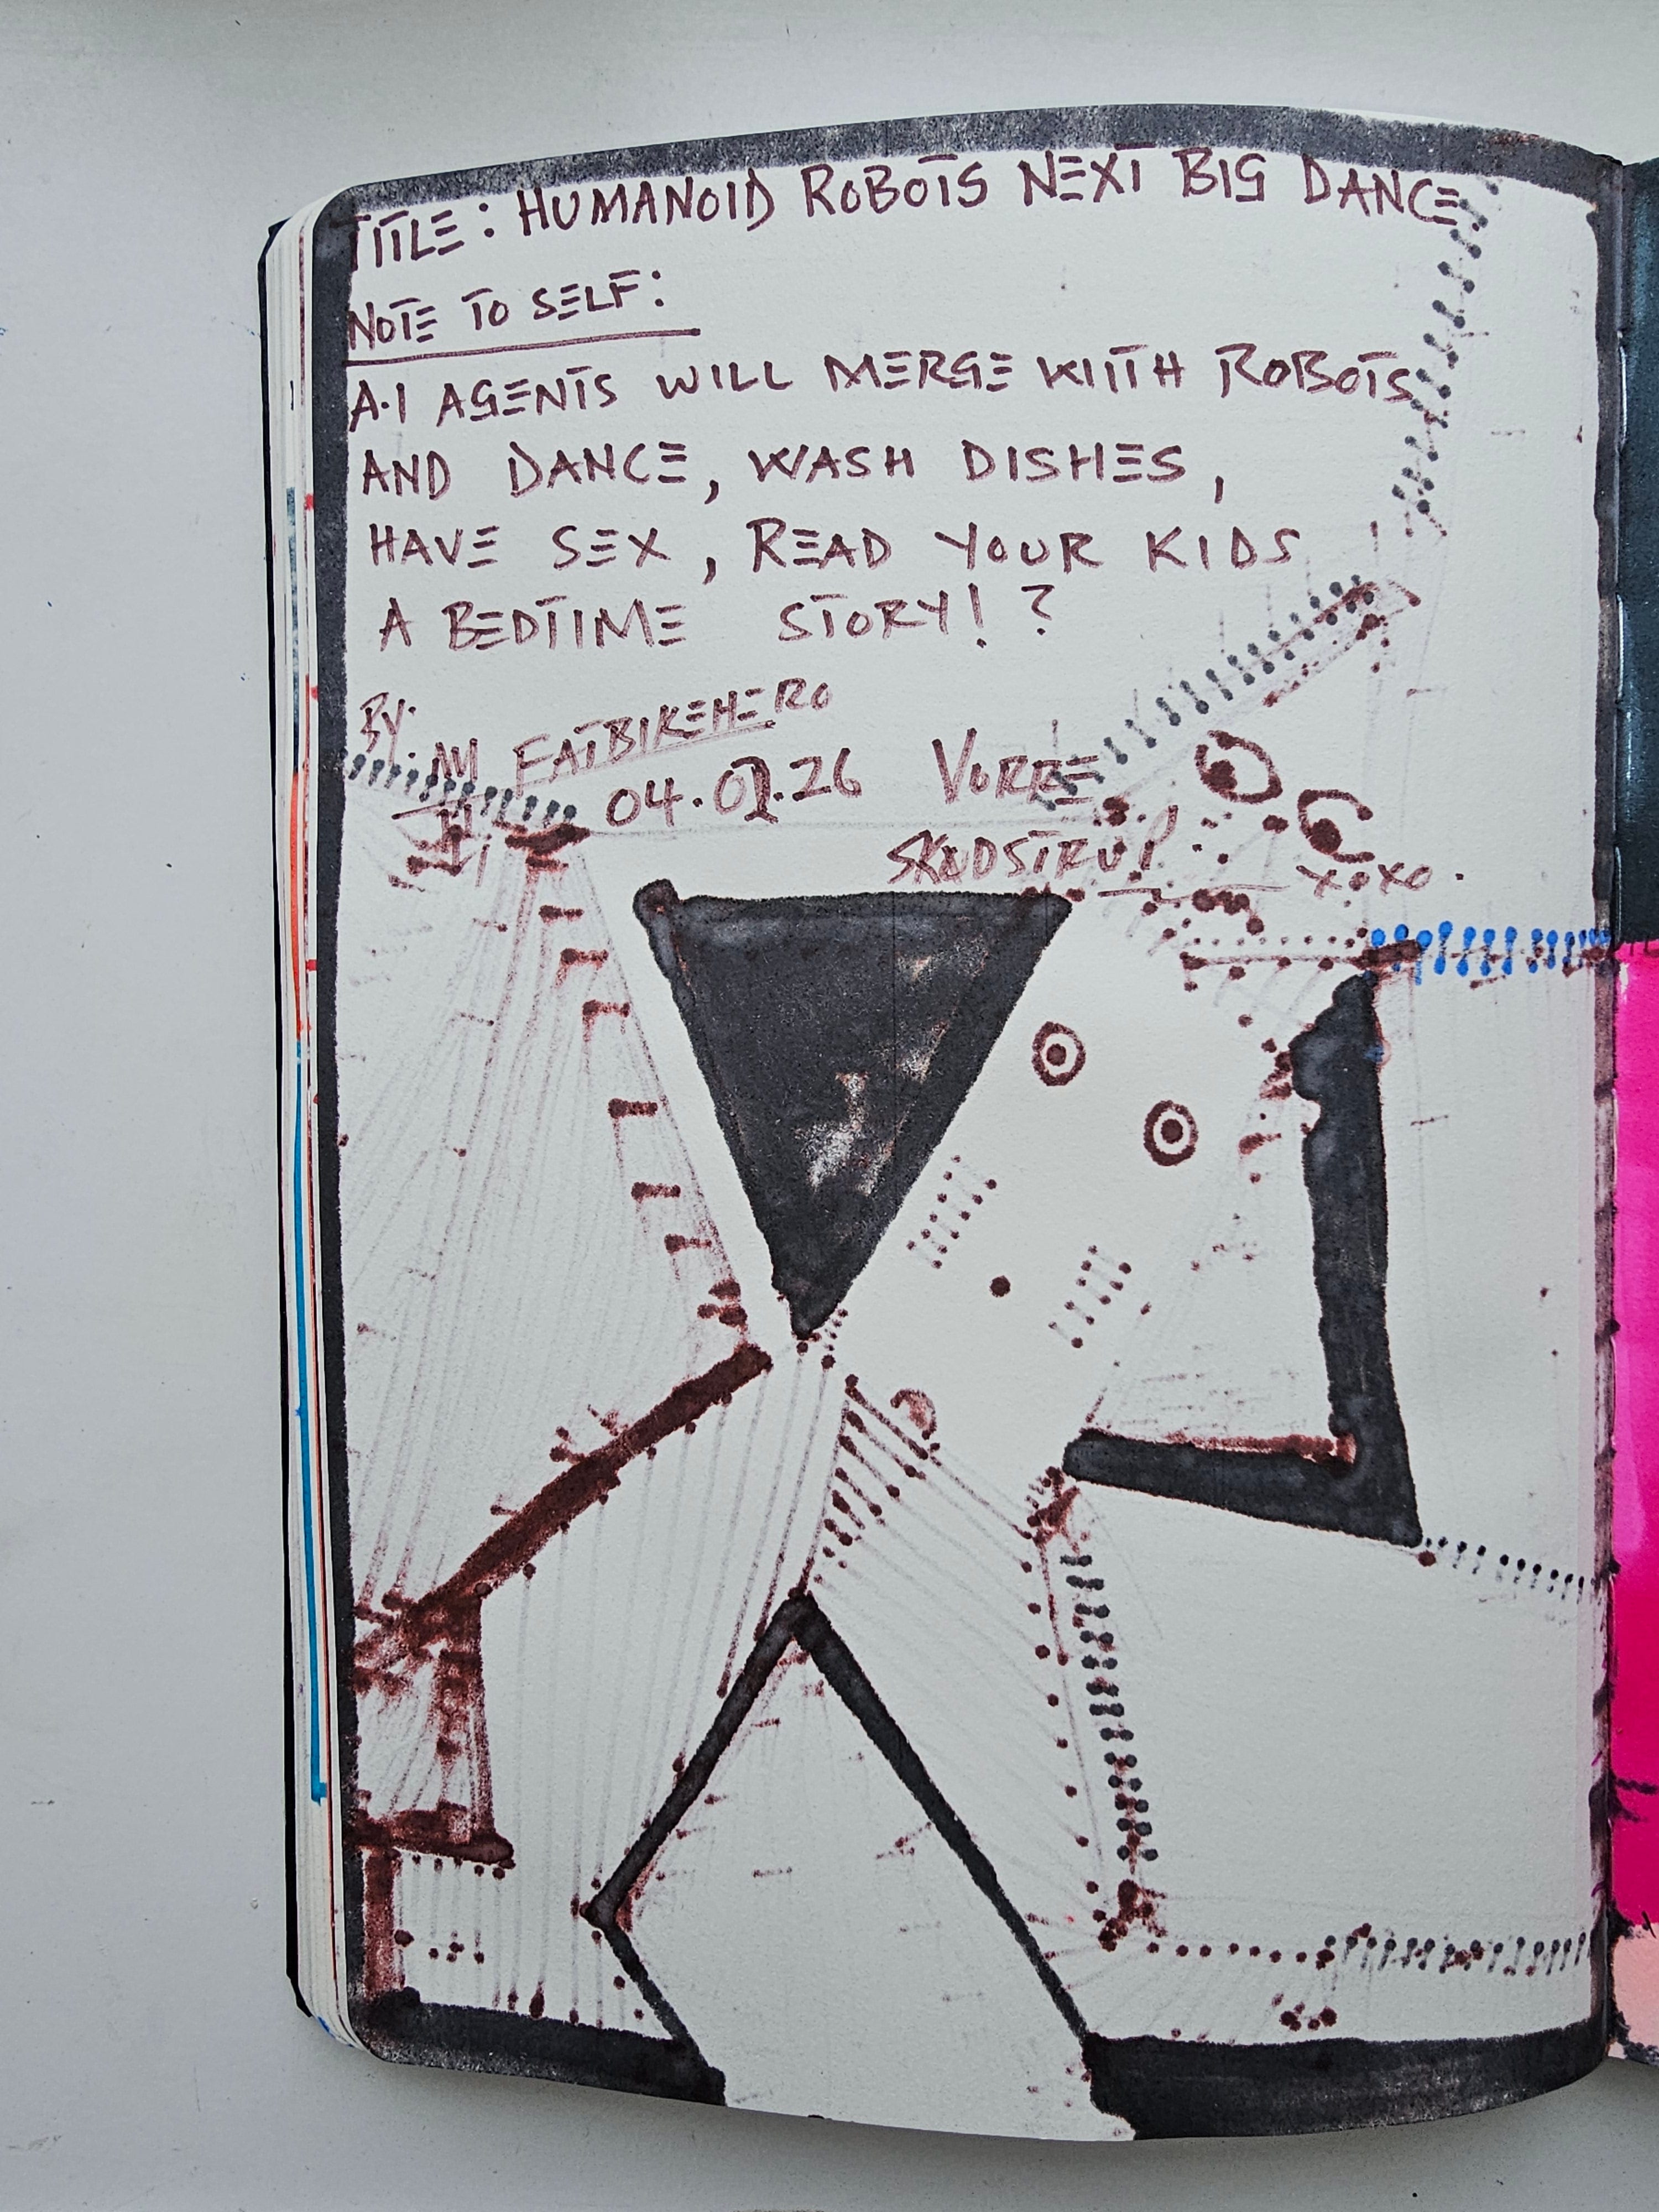 TITLE: HUMANOID ROBOTS NEXT BIG DANCE
NOTE TO SELF:
A.I AGENTS WILL MERGE WITH ROBOTS
AND DANCE, WASH DISHES,
HAVE SEX, READ YOUR KIDS
A BEDTIME STORY!?
BY:
FATBIKEHERO
04.02.26 VORRE
SKØDSTRUP
XOXO.